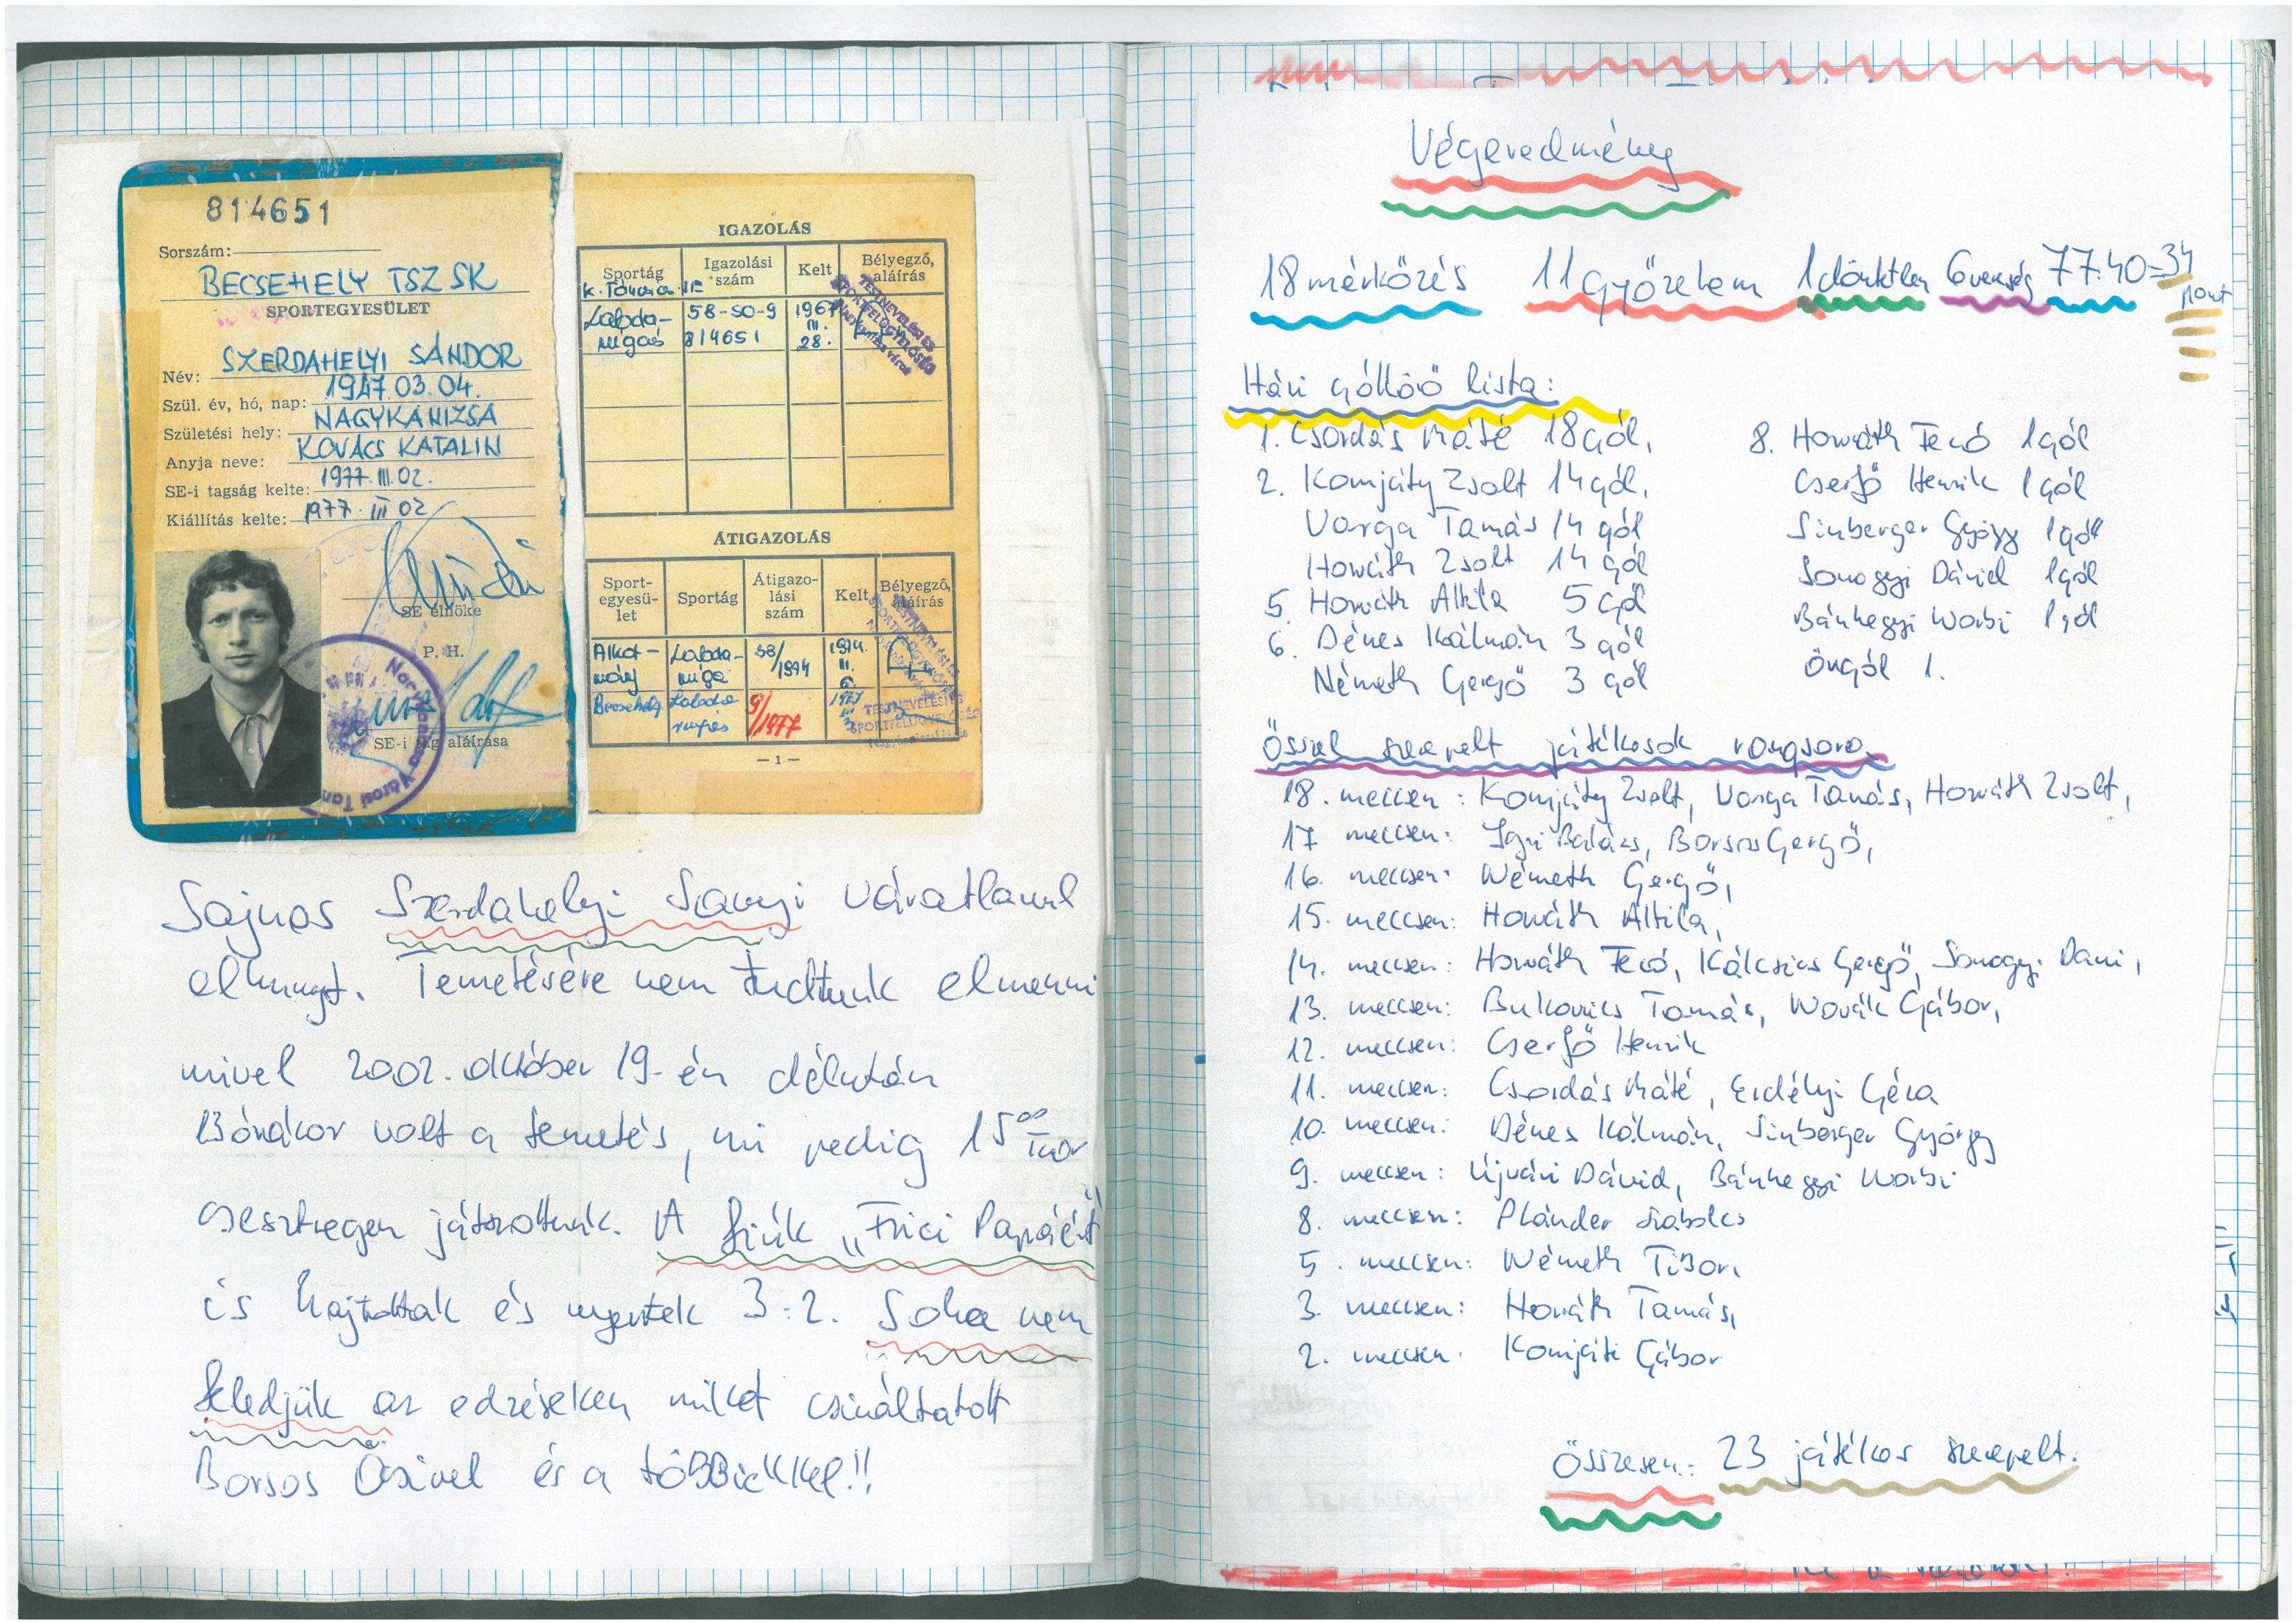 814651
Sorszám:
BECSEHELY TSZ SK
SPORTEGYESÜLET
Név: SZERDAHELYI SÁNDOR
Szül. év, hó, nap: 1947.03.04.
Születési hely: NAGYKANIZSA
Anyja neve: KOVÁCS KATALIN
SE-i tagság kelte: 1977.III.02.
Kiállítás kelte: 1977.III 02
SE elnöke
P. H.
SE-i tag aláírása
IGAZOLÁS
Sportág Igazolási szám Kelt Bélyegző, aláírás
Labda-rúgás 58-50-9 814651 1967 III. 28.
TESTNEVELÉSI ÉS SPORTFELÜGYELŐSÉG
ÁTIGAZOLÁS
Sport-egyesü-let Sportág Átigazo-lási szám Kelt Bélyegző, aláírás
Alkot-mány Labda-rúgá 58/1974 1974. III. 6.
Becsehely Labda rugás 9/1977 1977 III
TESTNEVELÉSI ÉS SPORTFELÜGYELŐSÉG
— 1 —
Sajnos Szerdahelyi Sanyi váratlanul
elhunyt. Temetésére nem tudtunk elmenni
mivel 2002. október 19-én délután
13órakor volt a temetés, mi pedig 15⁰⁰ kor
Csesztregen játszottunk. A fiúk „Frici Papáért"
is hajtottak és nyertek 3:2. Soha nem
feledjük az edzéseken miket csináltatott
Borsos Öcsivel és a többiekkel!!
Végeredmény
18 mérkőzés 11 Győzelem 1 döntetlen 6 vereség 77:40=34 pont
Házi góllövő lista:
1. Csordás Máté 18 gól,
2. Komjáty Zsolt 14 gól,
Varga Tamás 14 gól
Horváth Zsolt 14 gól
5. Horváth Attila 5 gól
6. Dénes Kálmán 3 gól
Németh Gergő 3 gól
8. Horváth Fecó 1 gól
Cserfő Henrik 1 gól
Simberger György 1 gól
Somogyi Dániel 1 gól
Bánhegyi Norbi 1 gól
Öngól 1.
Ősszel szerepelt játékosok rangsora
18. meccsen: Komjáty Zsolt, Varga Tamás, Horváth Zsolt,
17 meccsen: Balázs, Borsos Gergő,
16. meccsen: Németh Gergő,
15. meccsen: Horváth Attila,
14. meccsen: Horváth Fecó, Kálcsics Gergő, Somogyi Dani,
13. meccsen: Bukovics Tamás, Novák Gábor,
12. meccsen: Cserfő Henrik
11. meccsen: Csordás Máté, Erdélyi Géza
10. meccsen: Dénes Kálmán, Simberger György
9. meccsen: Újvári Dávid, Bánhegyi Norbi
8. meccsen: Plánder Szabolcs
5. meccsen: Németh Tibor,
3. meccsen: Horváth Tamás,
2. meccsen: Komjáti Gábor
Összesen: 23 játékos szerepelt.